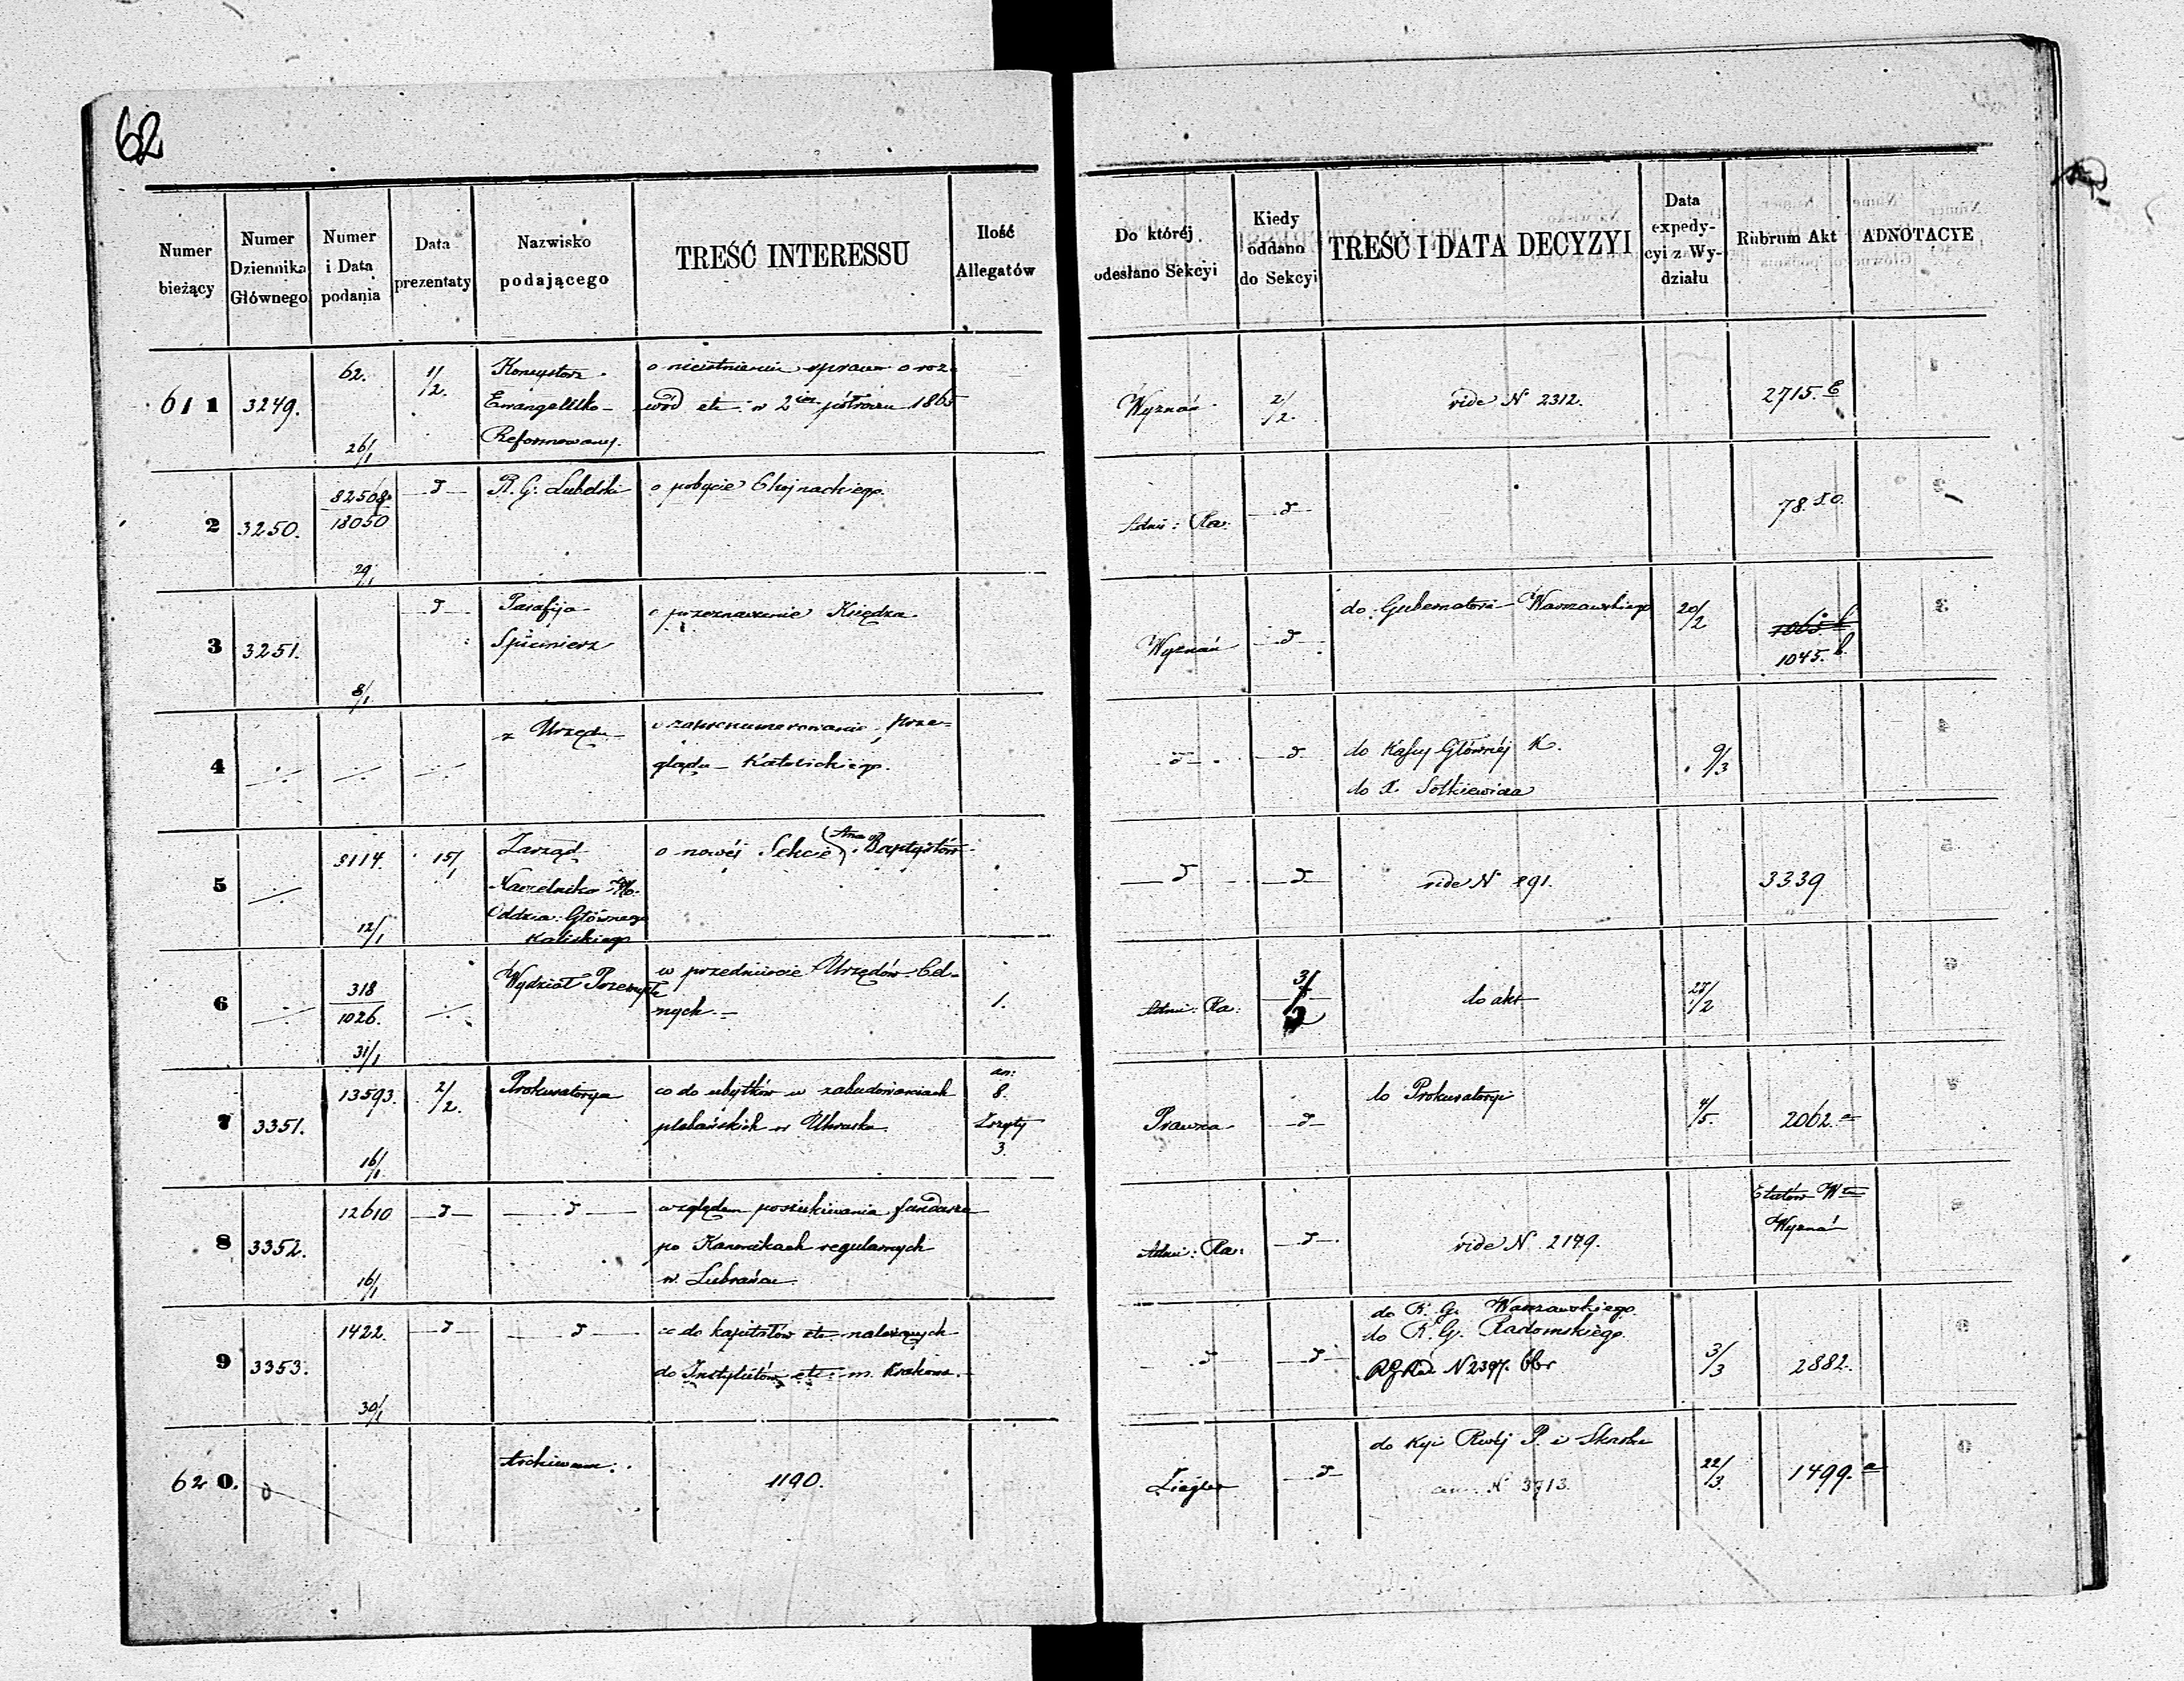 62
Numer bieżący
Numer Dziennika Głównego
Numer i Data podania
Data prezentaty
Nazwisko podającego
TREŚĆ INTERESSU
Ilość Allegatów
Do której odesłano Sekcyi
Kiedy oddano do Sekcyi
TREŚĆ I DATA DECYZYI
Data expedy-cyi z Wy-działu
Rubrum Akt
ADNOTACYE
611 3249. 62. 26/1 1/2. Konsystorz Ewangelicko- Reformowany. o nieistnieniu spraw o roz- wód etc: w 2 półroczu 1865 Wyznań 2/2. vide N 2312. 2715.
2 3250. 18050 29/1 d R. G. Lubelski o pobycie Chojnackiego. Adm: d 78.
3 3251. 8/1 d Parafija o przeznaczenie Księdza Wyznań d do Gubernatora Warszawskiego 20/2 1045. b.
4 z Urzędu o zaprenumerowanie Prze- glądu Katolickiego. d d do Kassy Głównéj K. do X. Sotkiewicza 9/3
5 3114. 12/1 15/1 Zarząd Naczelnika Oddzia: Głównego Kaliskiego o nowéj Sekcie (Ana) Baptystów d d vide N 891. 3339
6 318 1026. 31/1 Wydział w przedmiocie Urzędów Cel- nych. 1. Adm: 3/2 do akt /2
7 3351. 13593. 16/1 2/2. Prokuratorya co do ubytków w zabudowaniach plebańskich w 8. Zszyty 3. Prawna d do Prokuratoryi 4/5. 2062.
8 3352. 12610 16/1 d d względem poszukiwania funduszu po Kanonikach regularnych w Lubrańcu Adm: d vide N. 2179. Etatów Wyznań
9 3353. 1422. 30/1 d d co do kapitałów etc należących do Instytutów etc: m. Krakowa. d d do R. G. Warszawskiego. do R. G. Radomskiego. N 2397. 3/3 2882.
620. Archiwum. 1190. Ziegler d do P. i Skarbu N 3713. 22/3. 1499. a